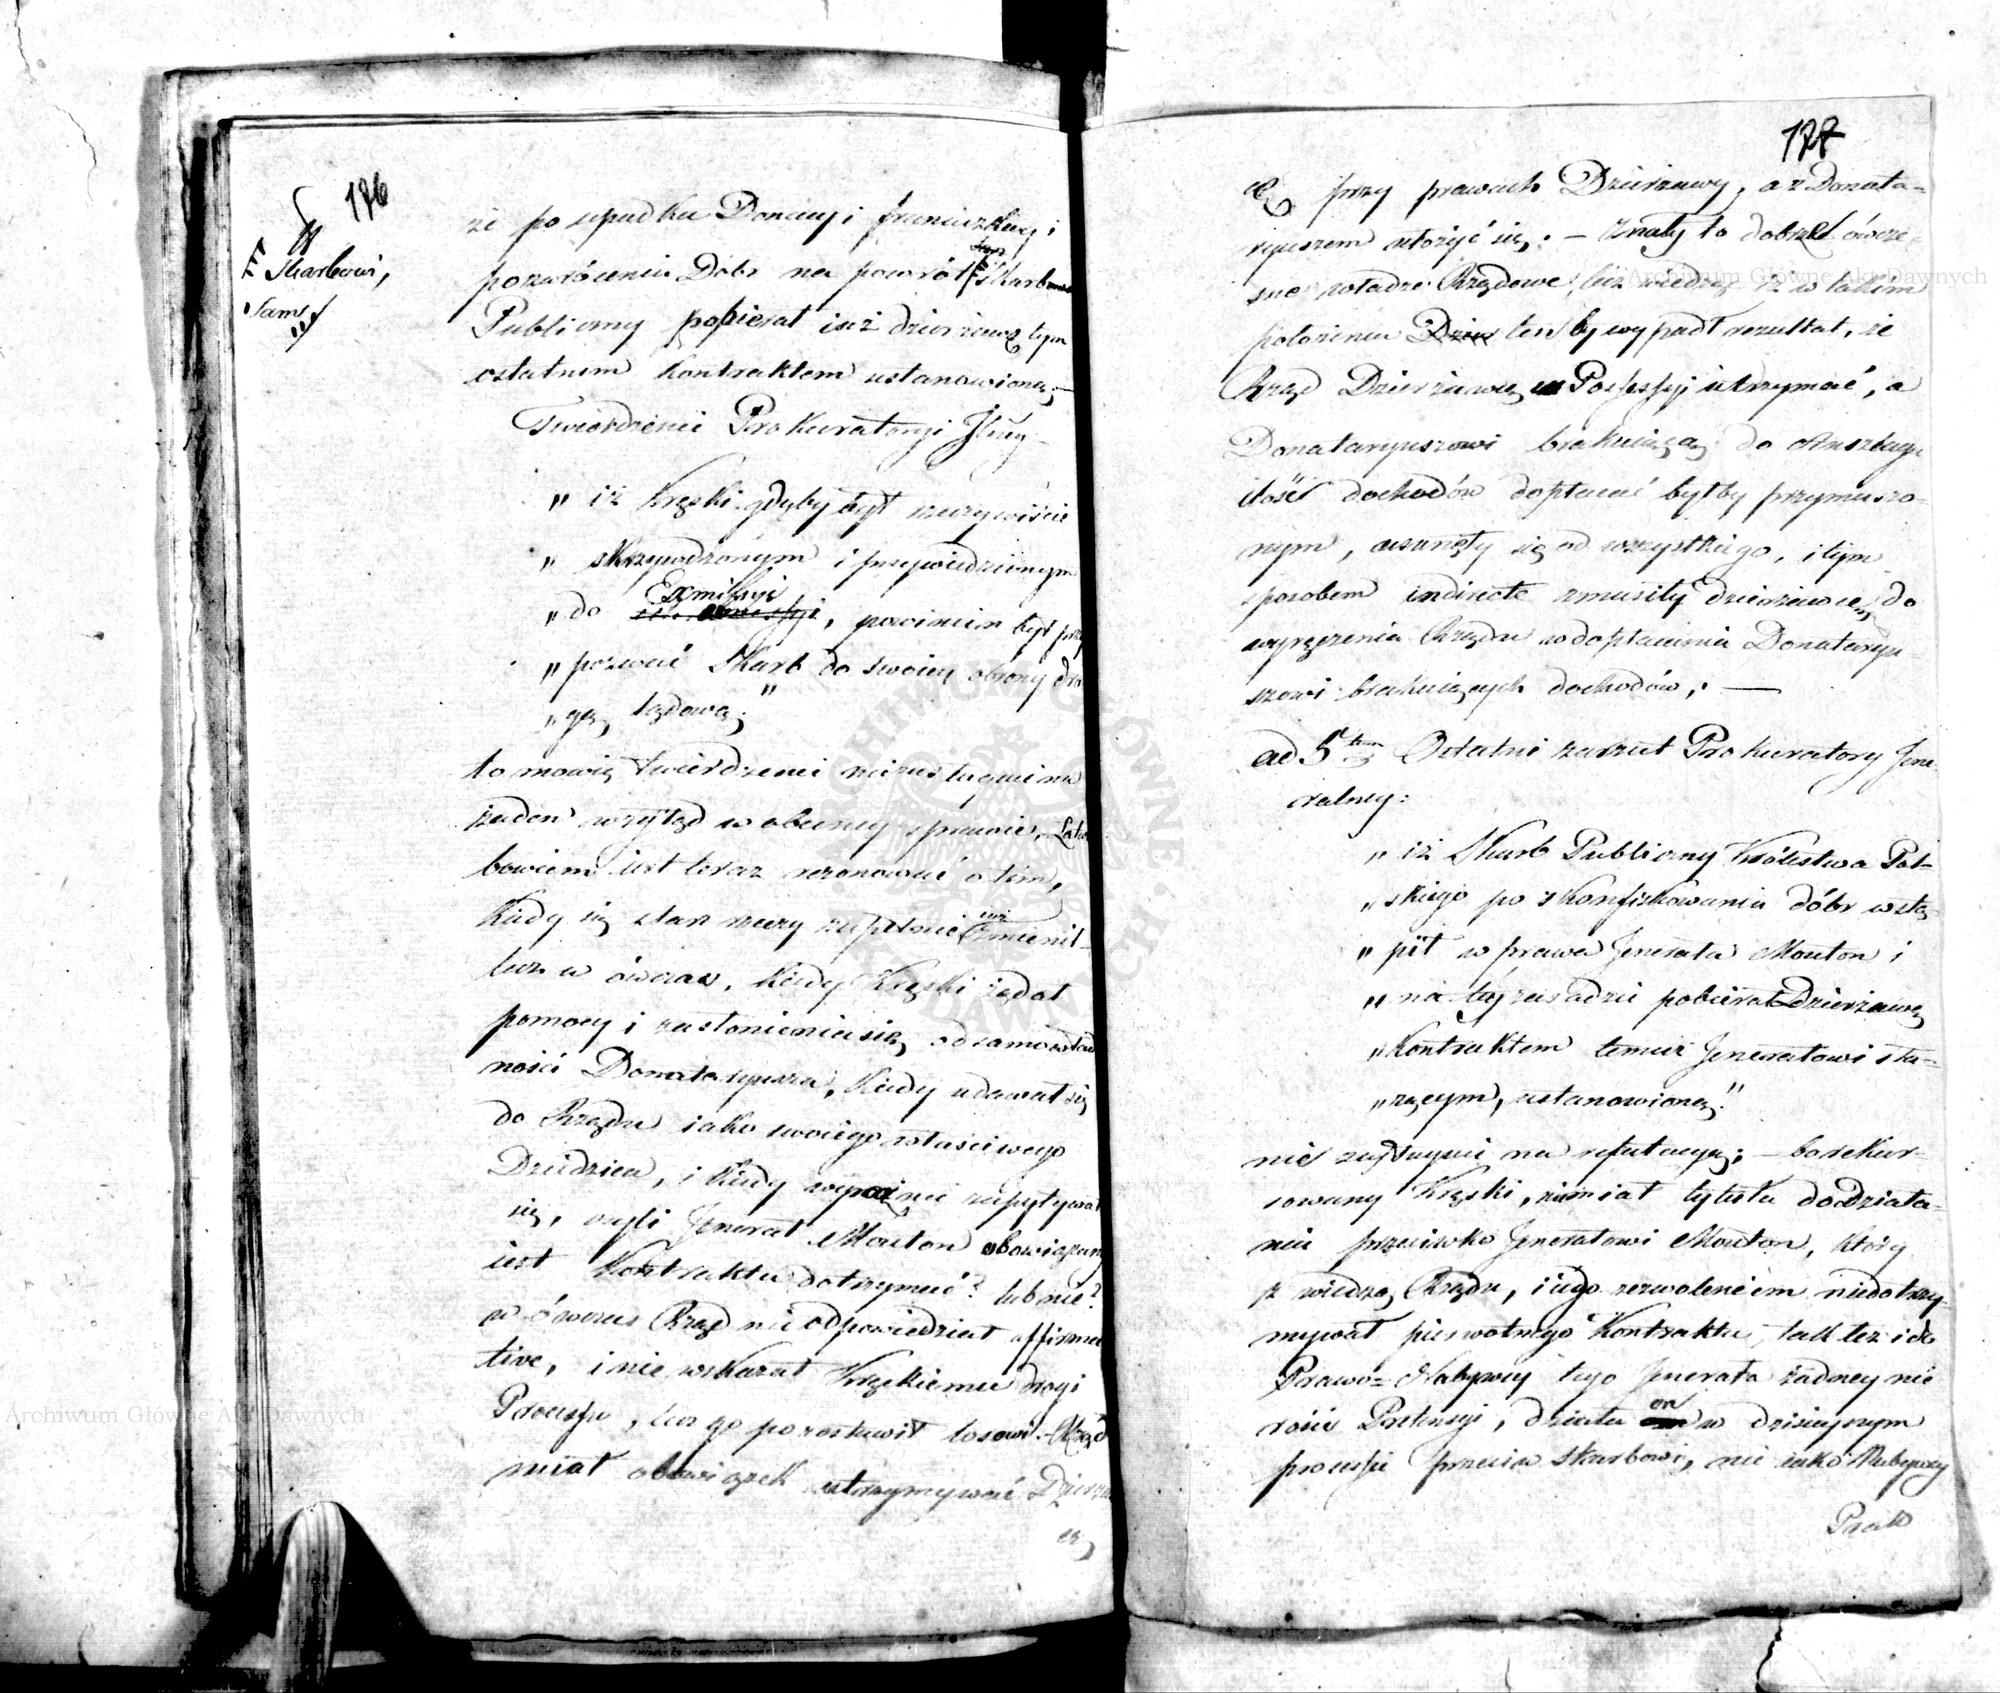 176
Skarbowi,
Sam
że po upadku Donacyi francuzkiey i
pozwróceniu Dóbr na powrót Skarb
Publiczny pobierał iuż dzierżawę tym
ostatnim Kontraktem ustanowioną;—
Twierdzenie Prokuratoryi Jlney
„ iż Kręski gdyby był rzeczywiście
„ skrzywdzonym i przywiedzionym
„ do Exmissyi, powinien był przy
„ pozwać Skarb do swoiey obrony dro
„ gą sądową;"
to mówię twierdzenie niezasługuie na
żaden wzgląd w obecney sprawie,
bowiem iest teraz rezonować o tém,
Kiedy się stan rzeczy zupełnie iuż zmienił
lecz w ówczas, Kiedy Kręski żądał
pomocy i zasłonienia się od samowład
ności Donataryusza, Kiedy udawał się
do Rządu iako swoiego właściwego
Dziedzica, i Kiedy wyraźnie zapytywał
się, czyli Jenerał Mouton obowiązany
iest Kontraktu dotrzymać? lub nie?
w ówczas Rząd nie odpowiedział affirma
tive, i nie wskazał Kręskiemu drogi
Processu, lecz go pozostawił losowi.— Rząd
miał obowiązek utrzymywać Dzierża
cę
177
cę przy prawach Dzierżawy, a z Donata=
ryuszem ułożyć się;— Znały to dobrze ówcze
sne władze Rządowe, lecz wiedząc iż w takim
położeniu ten by wypadł rezultat, że
Rząd Dzierżawcę w Possessyi utrzymać, a
Donataryuszowi brakuiącą do Anszlagu
ilość dochodów dopłacać byłby przymuszo=
nym, usunęły się od wszystkiego, i tym
sposobem indirecte zmusiły dzierżawcę do
wyręczenia Rządu w dopłaceniu Donataryu=
szowi brakuiących dochodów;—
ad 5tm Ostatni zarzut Prokuratoryi Jene=
ralney:
„ iż Skarb Publiczny Królestwa Pol=
„ skiego po skonfiskowaniu dóbr wstą=
„ pił w prawa Jenerała Mouton i
„ na téy zasadzie pobierał Dzierżawę
„ Kontraktem temuż Jenerałowi słu=
„ żącym, ustanowioną;"
nie zasługuie na refutacyą;— bo rekur=
sowany Kręski, niemiał tytułu do działa=
nia przeciwko Jenerałowi Mouton, który
z wiedzą Rządu, i iego zezwoleniem niedotrzy=
mywał pierwotnego Kontraktu, tak też i do
Prawo=Nabywcy tego Jenerała żadney nie
rości Pretensyi, działa on w dzisieyszym
processie przeciw Skarbowi, nie iako Nabywcy
Praw